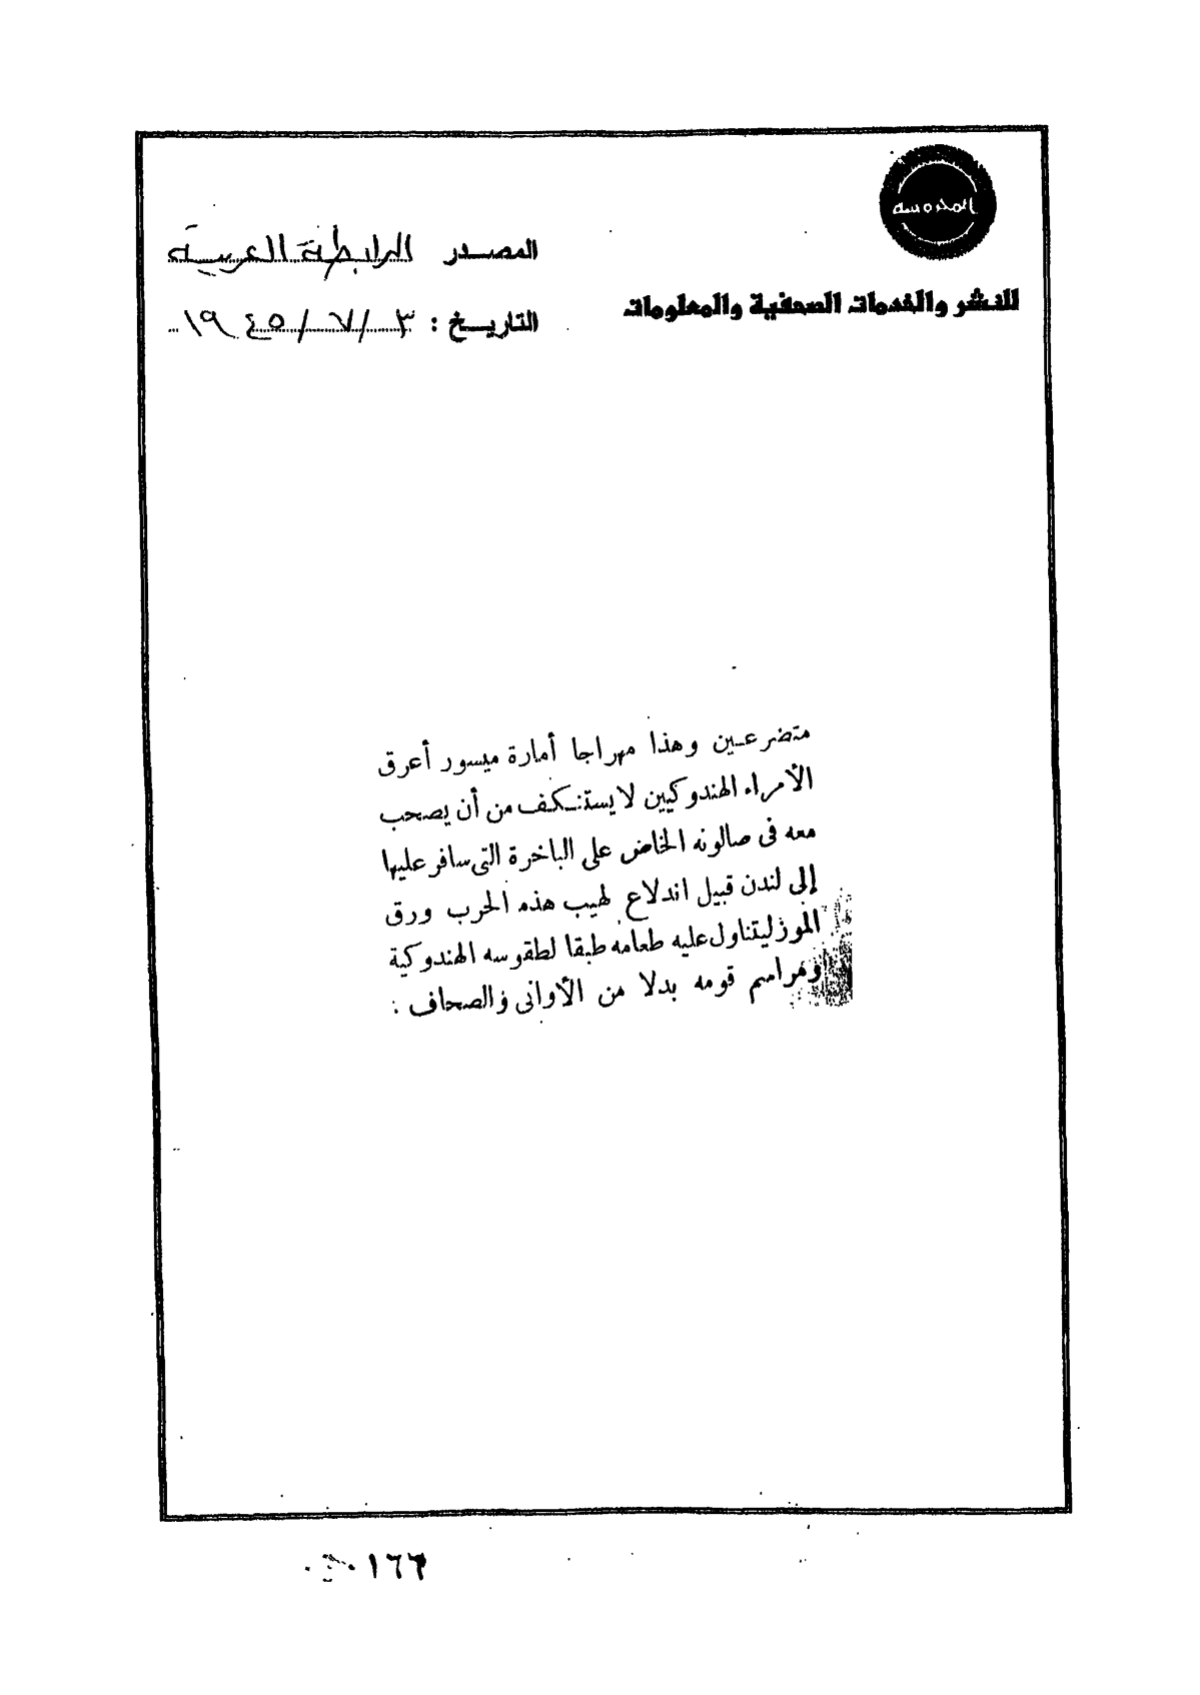 المحروسة
المصدر الرابطة العربية
للنشر والخدمات الصحفية والمعلومات
التاريخ : ٣ / ٧ / ١٩٤٥
متضرعين وهذا مهراجا أمارة ميسور أعرق
الأمراء الهندوكيين لا يستنكف من أن يصحب
معه فى صالونه الخاص على الباخرة التى سافر عليها
إلى لندن قبيل اندلاع لهيب هذه الحرب ورق
الموز ليتناول عليه طعامه طبقا لطقوسه الهندوكية
ومراسم قومه بدلا من الأوانى والصحاف :
١٦٦